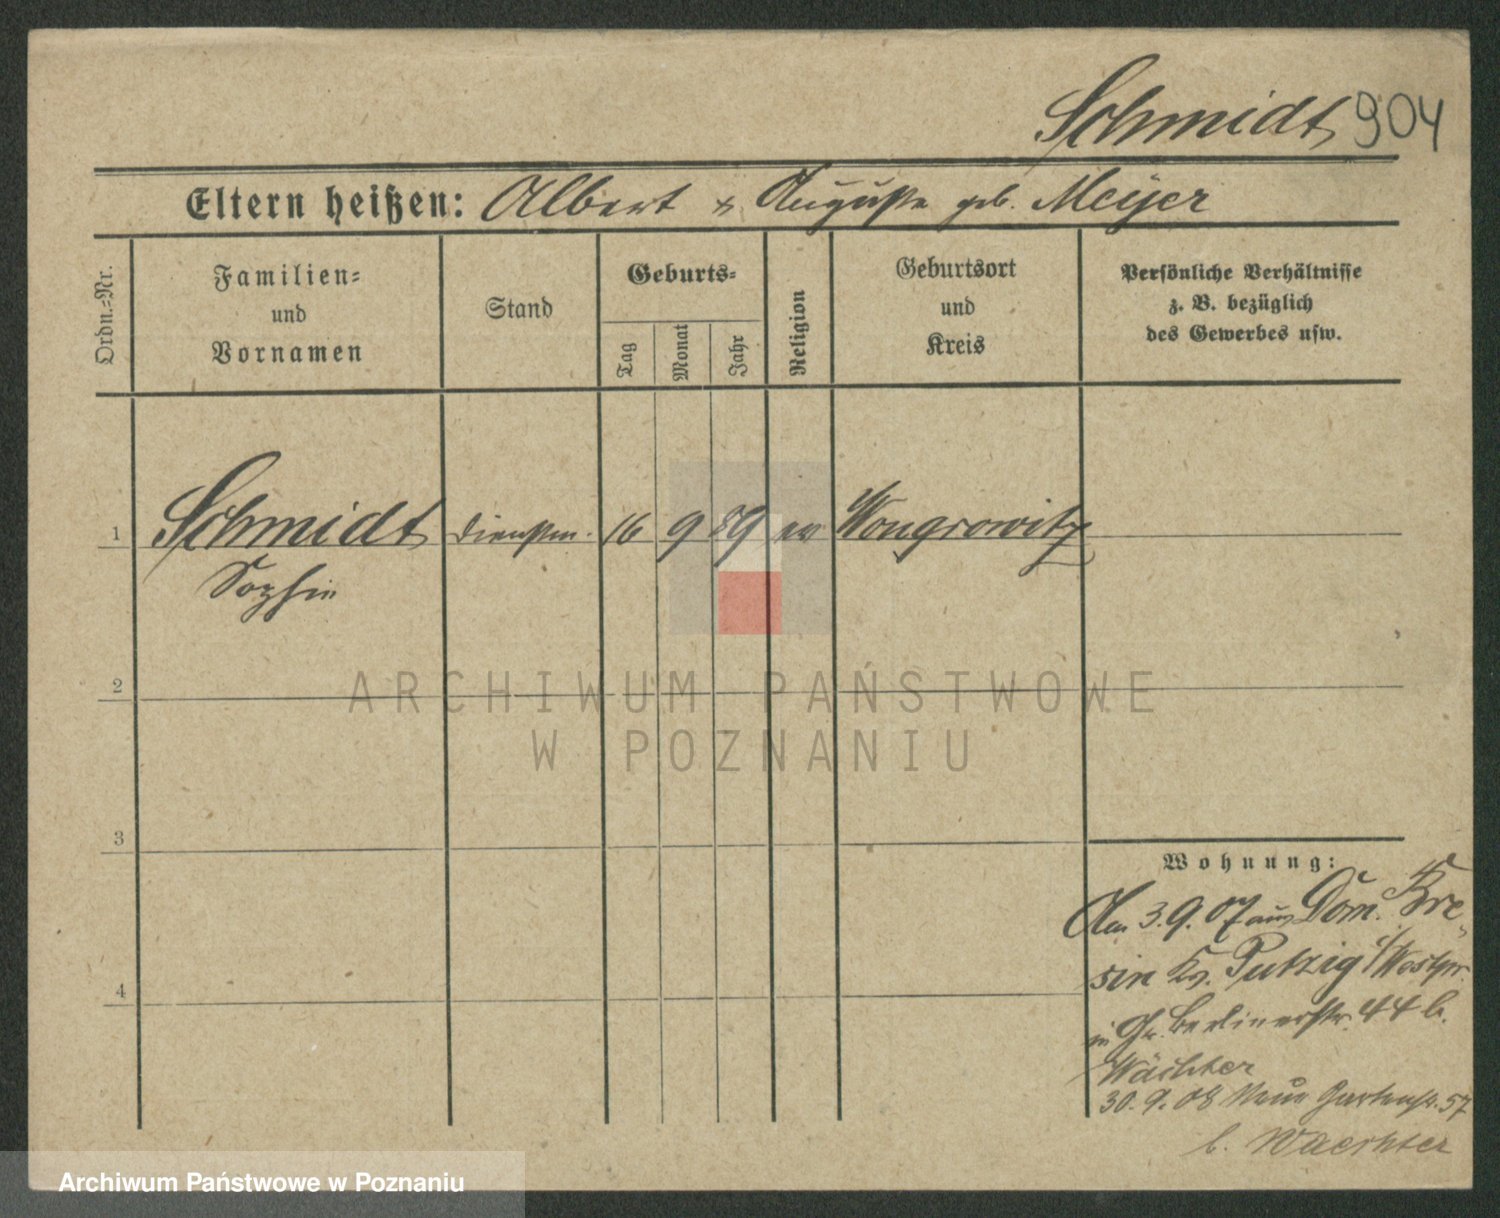 Schmidt 904
Eltern heißen: Albert & Auguste geb. Meyer
Ordn.-Nr.
Familien-
und
Vornamen
Stand
Geburts-
Tag
Monat
Jahr
Religion
Geburtsort
und
Kreis
Persönliche Verhältnisse
z. B. bezüglich
des Gewerbes usw.
1 Schmidt Dienstm. 16 9 89 ev Wongrowitz
Sophie
2
ARCHIWUM PAŃSTWOWE
W POZNANIU
3
Wohnung:
3.9.07 aus Dom. Kre-
sin Kr. Putzig /Westpr.
in Gr. Berlinerstr. 44 b.
Wächter
4
30.9.08 Neue Gartenstr. 57
b. Waechter
Archiwum Państwowe w Poznaniu